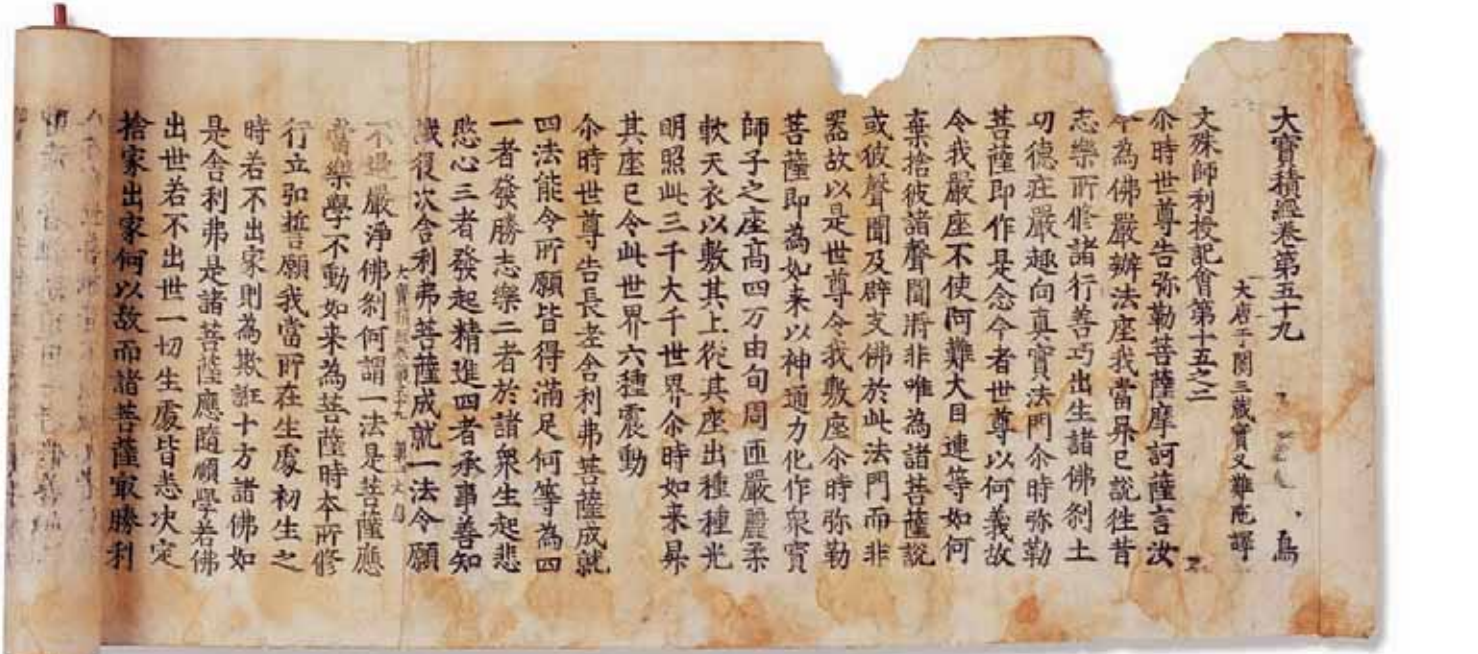 大寶積經卷第五十九 鳥
大唐于闐三藏實叉難陀譯
文殊師利授記會第十五之三
尒時世尊告弥勒菩薩摩訶薩言汝
今為佛嚴辦法座我當昇已說往昔
志樂所修諸行善巧出生諸佛剎土
功德庄嚴趣向真實法門尒時弥勒
菩薩即作是念今者世尊以何義故
令我嚴座不使阿難大目連等如何
棄捨彼諸聲聞將非唯為諸菩薩說
或彼聲聞及辟支佛於此法門而非
器故以是世尊令我敷座尒時弥勒
菩薩即為如来以神通力化作衆寶
師子之座高四万由旬周匝嚴麗柔
軟天衣以敷其上從其座出種種光
明照此三千大千世界尒時如来昇
其座已令此世界六種震動
尒時世尊告長老舍利弗菩薩成就
四法能令所願皆得滿足何等為四
一者發勝志樂二者於諸衆生起悲
愍心三者發起精進四者承事善知
識復次舍利弗菩薩成就一法令願
大寶積經卷第五十九
不退嚴淨佛剎何謂一法是菩薩應
當樂學不動如来為菩薩時本所修
行立弘誓願我當所在生處初生之
時若不出家則為欺誑十方諸佛如
是舍利弗是諸菩薩應隨順學若佛
出世若不出世一切生處皆悉决定
捨家出家何以故而諸菩薩冣勝利